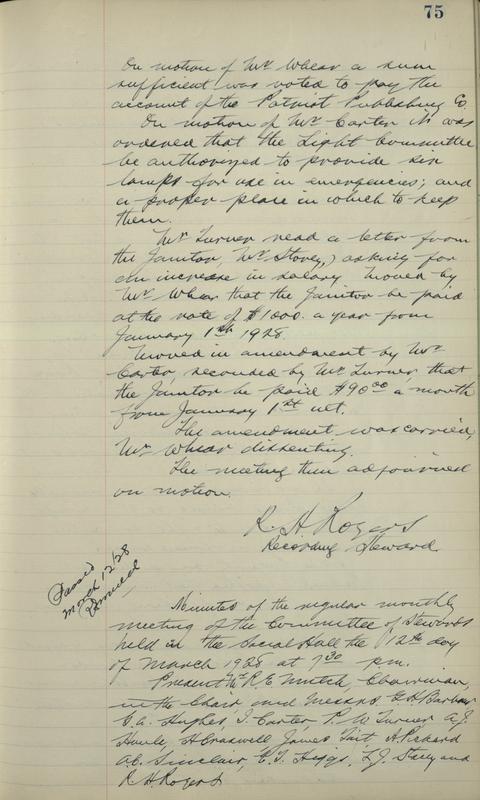 75
On motion of Mr Whear a sum
sufficient was voted to pay the
account of the Patriot Publishing Co.
On motion of Mr Carter it was
ordered that the Light Committee
be authorized to provide six
lamps for use in emergencies; and
a proper place in which to keep
them.
Mr Turner read a letter from
the Janitor, Mr Storey, asking for
an increase in salary. Moved by
Mr Whear that the Janitor be paid
at the rate of $1000. a year from
January 1st 1928.
Moved in amendment by Mr
Carter, seconded by Mr Turner, that
the Janitor be paid $90.00 a month
from January 1st ult.
The amendment was carried,
Mr Whear dissenting.
The meeting then adjourned
on motion.
R. H. Rogers
Recording Steward
Passed
March 12/28
Minutes of the regular monthly
meeting of the Committee of Stewards
held in the Social Hall the 12th day
of March 1928 at 7.30 p.m.
Present Mr R. E. Mutch, Chairman,
in the Chair, and Messrs. G. H. Barbour
C. A. Hughes I. Carter, P. W. Turner A. J.
Houle, H Craswell James Tait A. Pickard
A. E. Sinclair, E. T. Higgs, L. J. and
R. H. Rogers